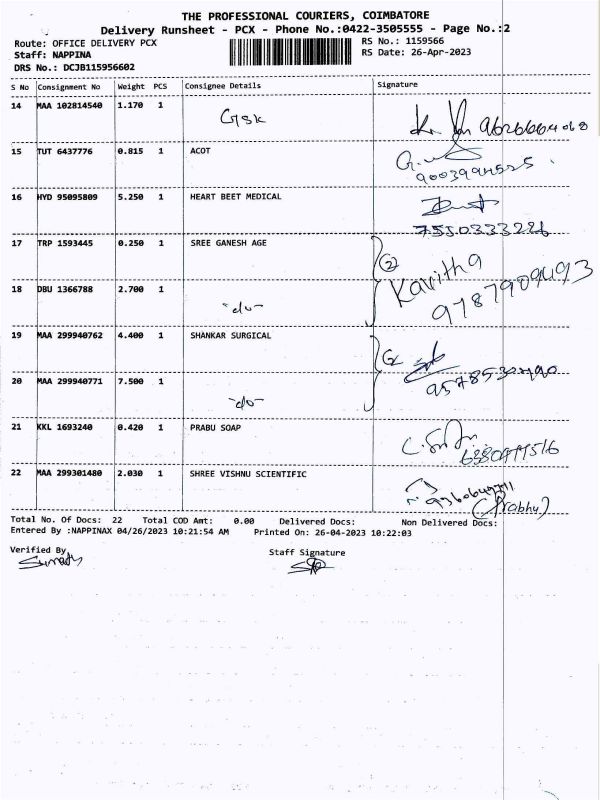 THE PROFESSIONAL COURIERS, COIMBATORE
Delivery Runsheet - PCX - Phone No.:0422-3505555 - Page No.:2
Route: OFFICE DELIVERY PCX
RS No.: 1159566
Staff: NAPPINA
RS Date: 26-Apr-2023
DRS No.: DCJB115956602
S No Consignment No Weight PCS Consignee Details Signature
14 MAA 102814540 1.170 1 GSK
15 TUT 6437776 0.815 1 ACOT
9003994525
16 HYD 95095809 5.250 1 HEART BEET MEDICAL
7550333226
17 TRP 1593445 0.250 1 SREE GANESH AGE
2 Kavitha
9787909493
18 DBU 1366788 2.700 1 -do-
19 MAA 299940762 4.400 1 SHANKAR SURGICAL
2
20 MAA 299940771 7.500 1 -do-
21 KKL 1693240 0.420 1 PRABU SOAP
22 MAA 299301480 2.030 1 SHREE VISHNU SCIENTIFIC
(Prabhu)
Total No. Of Docs: 22 Total COD Amt: 0.00 Delivered Docs: Non Delivered Docs:
Entered By :NAPPINAX 04/26/2023 10:21:54 AM Printed On: 26-04-2023 10:22:03
Verified By
Staff Signature